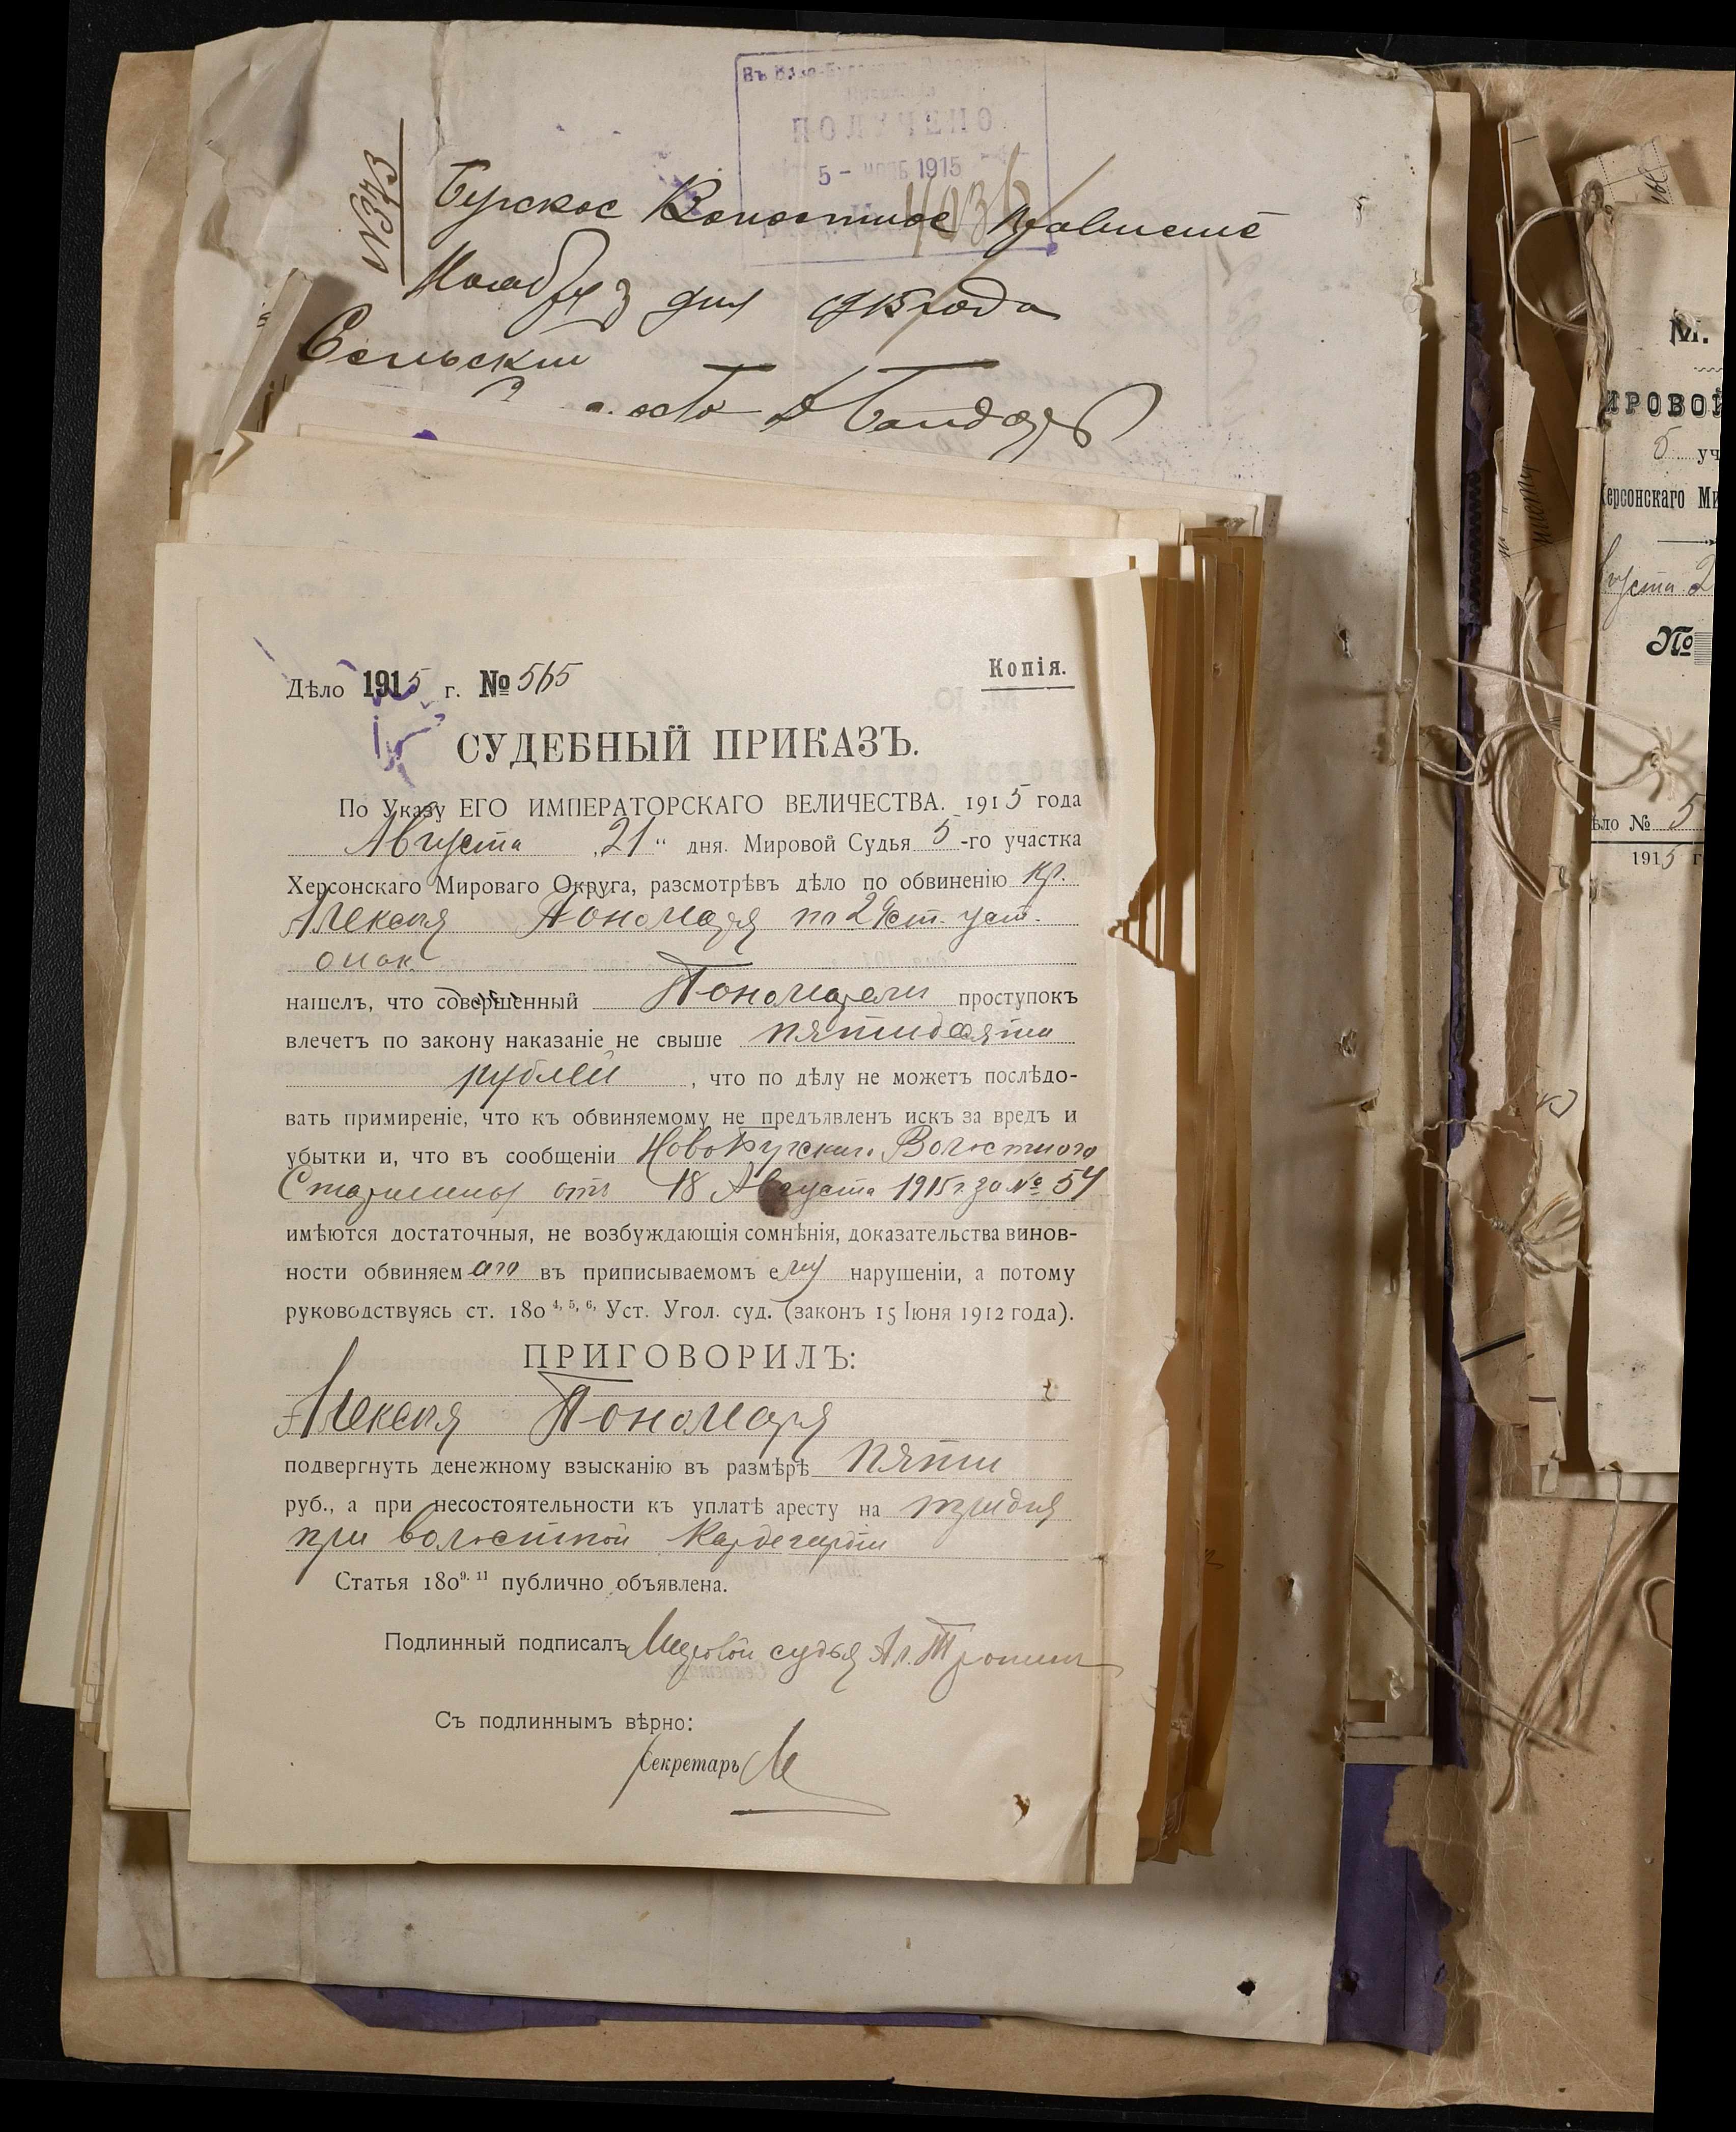 Въ
ПОЛУЧЕНО
5 - НОЯБ 1915
№373
Бугское Волостное Правленіе
Ноября 3 дня 1915 года
Сельскій
Дѣло 1915 г. № 565
Копія.
СУДЕБНЫЙ ПРИКАЗЪ.
По Указу ЕГО ИМПЕРАТОРСКАГО ВЕЛИЧЕСТВА. 1915 года
Августа „21“ дня. Мировой Судья 5-го участка
Херсонскаго Мироваго Округа, разсмотрѣвъ дѣло по обвиненію кр.
Алексѣя Пономаря по 29 ст. уст.
о нак.
нашелъ, что совершенный Пономаремъ проступокъ
влечетъ по закону наказаніе не свыше пятидесяти
рублей , что по дѣлу не можетъ послѣдо-
вать примиреніе, что къ обвиняемому не предъявленъ искъ за вредъ и
убытки и, что въ сообщеніи Ново Бугскаго Волостного
Старшины отъ 18 Августа 1915 г. за № 54
имѣются достаточныя, не возбуждающія сомнѣнія, доказательства винов-
ности обвиняемаго въ приписываемомъ ему нарушеніи, а потому
руководствуясь ст. 180 4, 5, 6, Уст. Угол. суд. (законъ 15 Іюня 1912 года).
ПРИГОВОРИЛЪ:
Алексѣя Пономаря
подвергнуть денежному взысканію въ размѣрѣ пяти
руб., а при несостоятельности къ уплатѣ аресту на три дня
при волостной Кардегардіи
Статья 180 9. 11 публично объявлена.
Подлинный подписалъ Мировой судья Ал.
Съ подлиннымъ вѣрно:
Секретарь
М.
ИРОВОЙ
5 уч
Херсонскаго Ми
Августа 2
№
ѣло № 5
1915 г